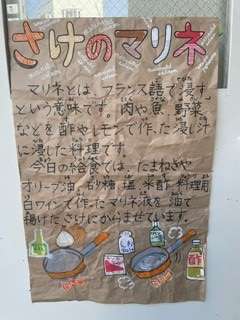 さけのマリネ
マリネとは、フランス語で「浸す」
という意味です。肉や魚、野菜
などを酢やレモンで作った浸け汁
に浸した料理です。
今日の給食では、たまねぎや
オリーブ油、砂糖、塩、米酢、料理用
白ワインで作ったマリネ液を、油で
揚げたさけにからませています。